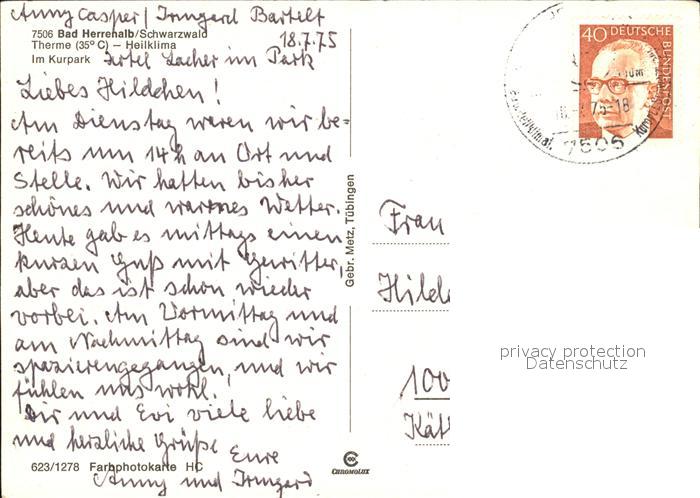 Anny Casper / Irmgard Bartelt
7506 Bad Herrenalb/Schwarzwald
18.7.75
Therme (35° C) – Heilklima
Im Kurpark
Hotel Lacher im Park
Liebes Hildchen!
Am Dienstag waren wir be-
reits um 14 h an Ort und
Stelle. Wir hatten bisher
schönes und warmes Wetter.
Heute gab es mittags einen
kurzen Guß mit Gewitter,
aber das ist schon wieder
vorbei. Am Vormittag und
am Nachmittag sind wir
spazierengegangen, und wir
fühlen uns wohl.
Dir und Evi viele liebe
und herzliche Grüße
Eure
Anny und Irmgard
623/1278 Farbphotokarte HC
Gebr. Metz, Tübingen
CHROMOLUX
40 DEUTSCHE
BUNDESPOST
75-18
7506
Frau
Hild
100
Kät
privacy protection
Datenschutz